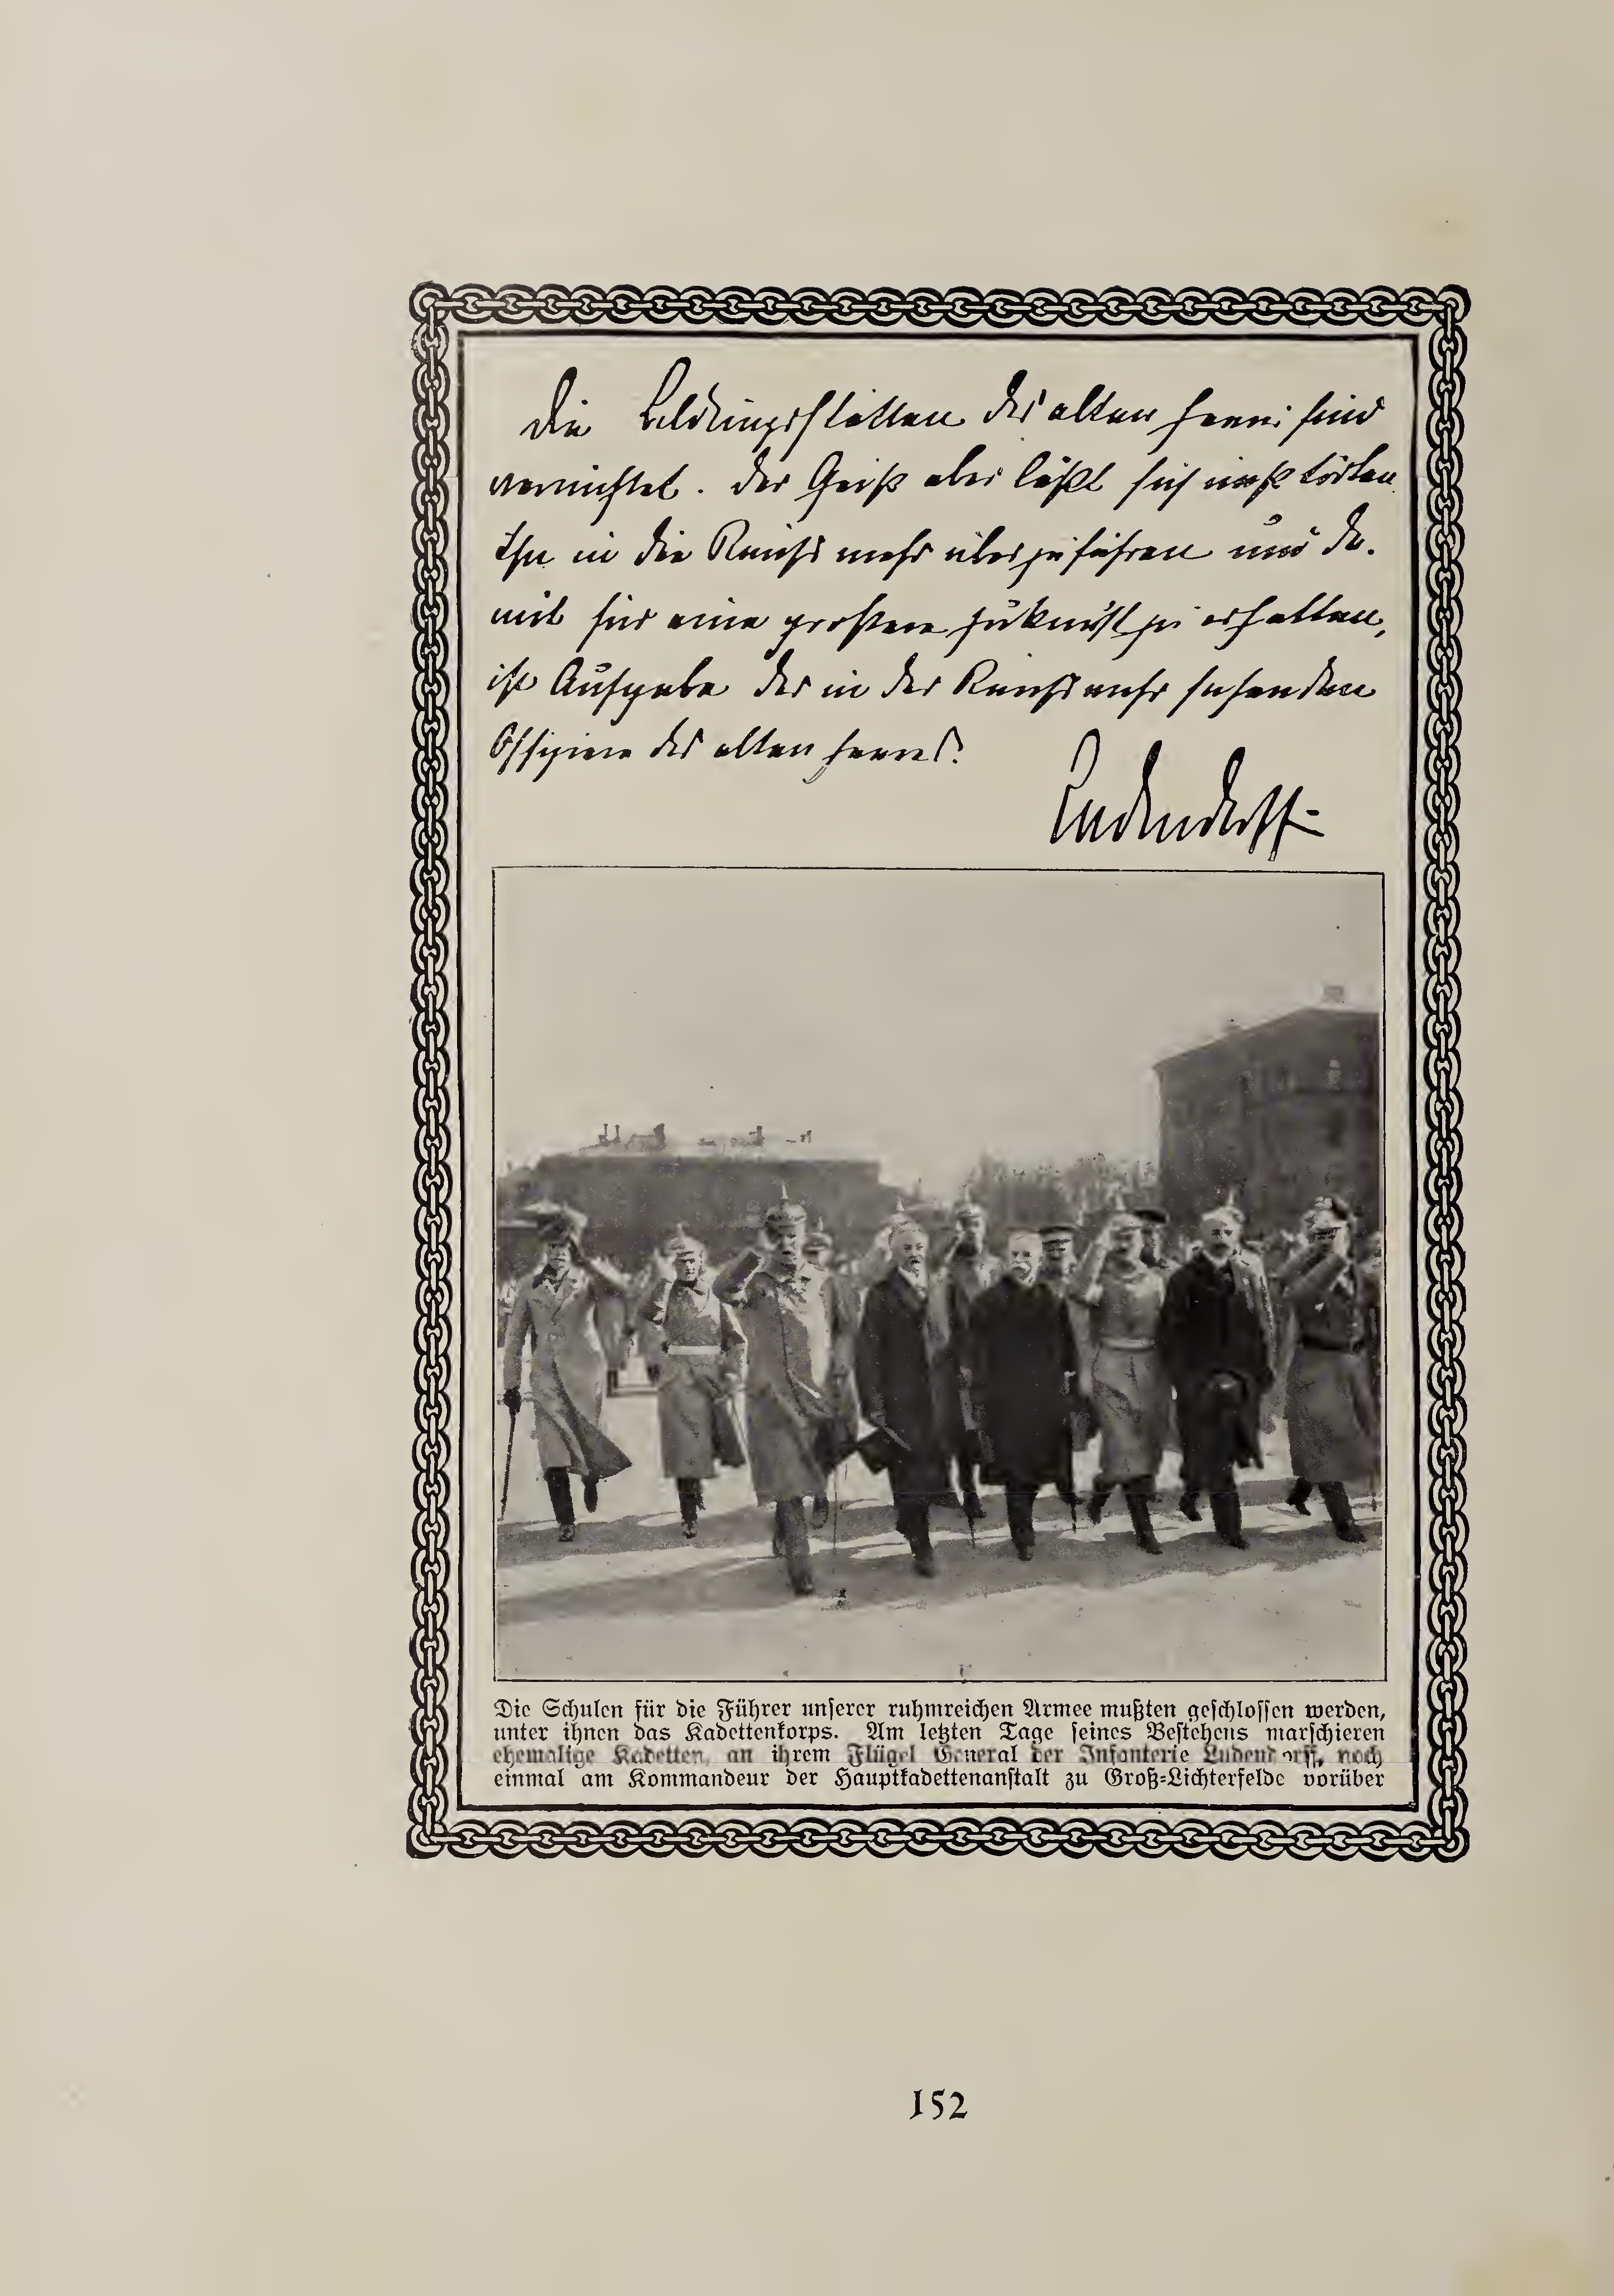 Die Bildungsstätten des alten Heeres sind
vernichtet. Der Geist aber läßt sich nicht töten.
Ihn in die Reichswehr überzuführen und da-
mit für eine größere Zukunft zu erhalten,
ist Aufgabe der in der Reichswehr stehenden
Offiziere des alten Heeres.
Ludendorff
Die Schulen für die Führer unserer ruhmreichen Armee mußten geschlossen werden,
unter ihnen das Kadettenkorps. Am letzten Tage seines Bestehens marschieren
ehemalige Kadetten, an ihrem Flügel General der Infanterie Ludendorff, noch
einmal am Kommandeur der Hauptkadettenanstalt zu Groß-Lichterfelde vorüber
152